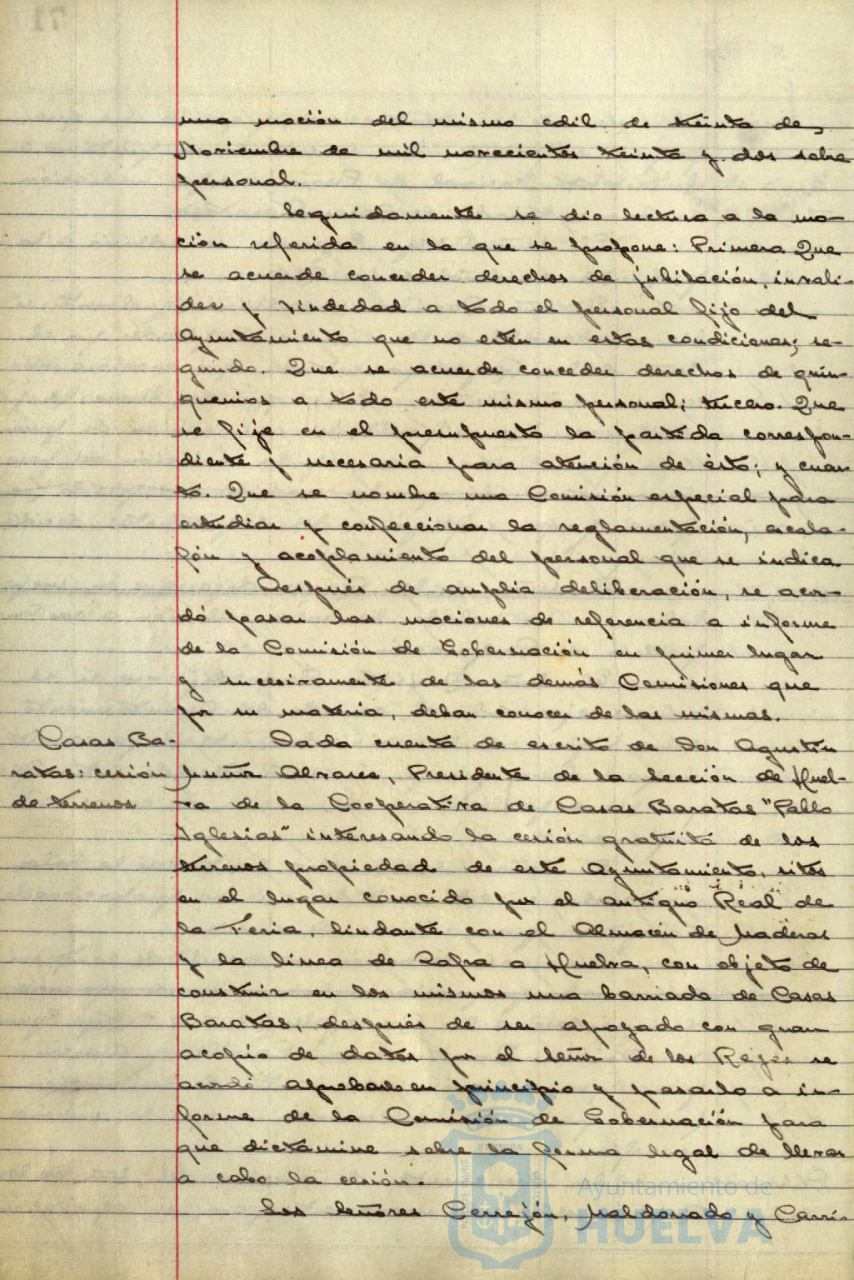 71
una moción del mismo edil de treinta de
Noviembre de mil novecientos treinta y dos sobre
personal.
Seguidamente se dio lectura a la mo-
ción referida en la que se propone: Primera. Que
se acuerde conceder derechos de jubilación, invali-
dez y viudedad a todo el personal fijo del
Ayuntamiento que no estén en estas condiciones; se-
gundo. Que se acuerde conceder derechos de quin-
quenios a todo este mismo personal; tercero. Que
se fije en el presupuesto la partida correspon-
diente y necesaria para atención de ésto; y cuar-
to. Que se nombre una Comisión especial para
estudiar y confeccionar la reglamentación, escala-
fón y acoplamiento del personal que se indica
Después de amplia deliberación, se acor-
dó pasar las mociones de referencia a informe
de la Comisión de Gobernación en primer lugar
y sucesivamente de las demás Comisiones que
por su materia, deban conocer de las mismas.
Casas Ba-
ratas: cesión
de terrenos
Dada cuenta de escrito de Don Agustín
Muñoz Alvarez, Presidente de la Sección de Huel-
va de la Cooperativa de Casas Baratas "Pablo
Iglesias" interesando la cesión gratuita de los
terrenos propiedad de este Ayuntamiento, sitos
en el lugar conocido por el antiguo Real de
la Feria, lindante con el Almacén de Maderas
y la línea de Zafra a Huelva, con objeto de
construir en los mismos una barriada de Casas
Baratas, después de ser apoyado con gran
acopio de datos por el Señor de los Reyes se
acordó aprobarlo en principio y pasarlo a in-
forme de la Comisión de Gobernación para
que dictamine sobre la forma legal de llevar
a cabo la cesión.
Los Señores Cerrejón, Maldonado y Carri-
Ayuntamiento de
HUELVA